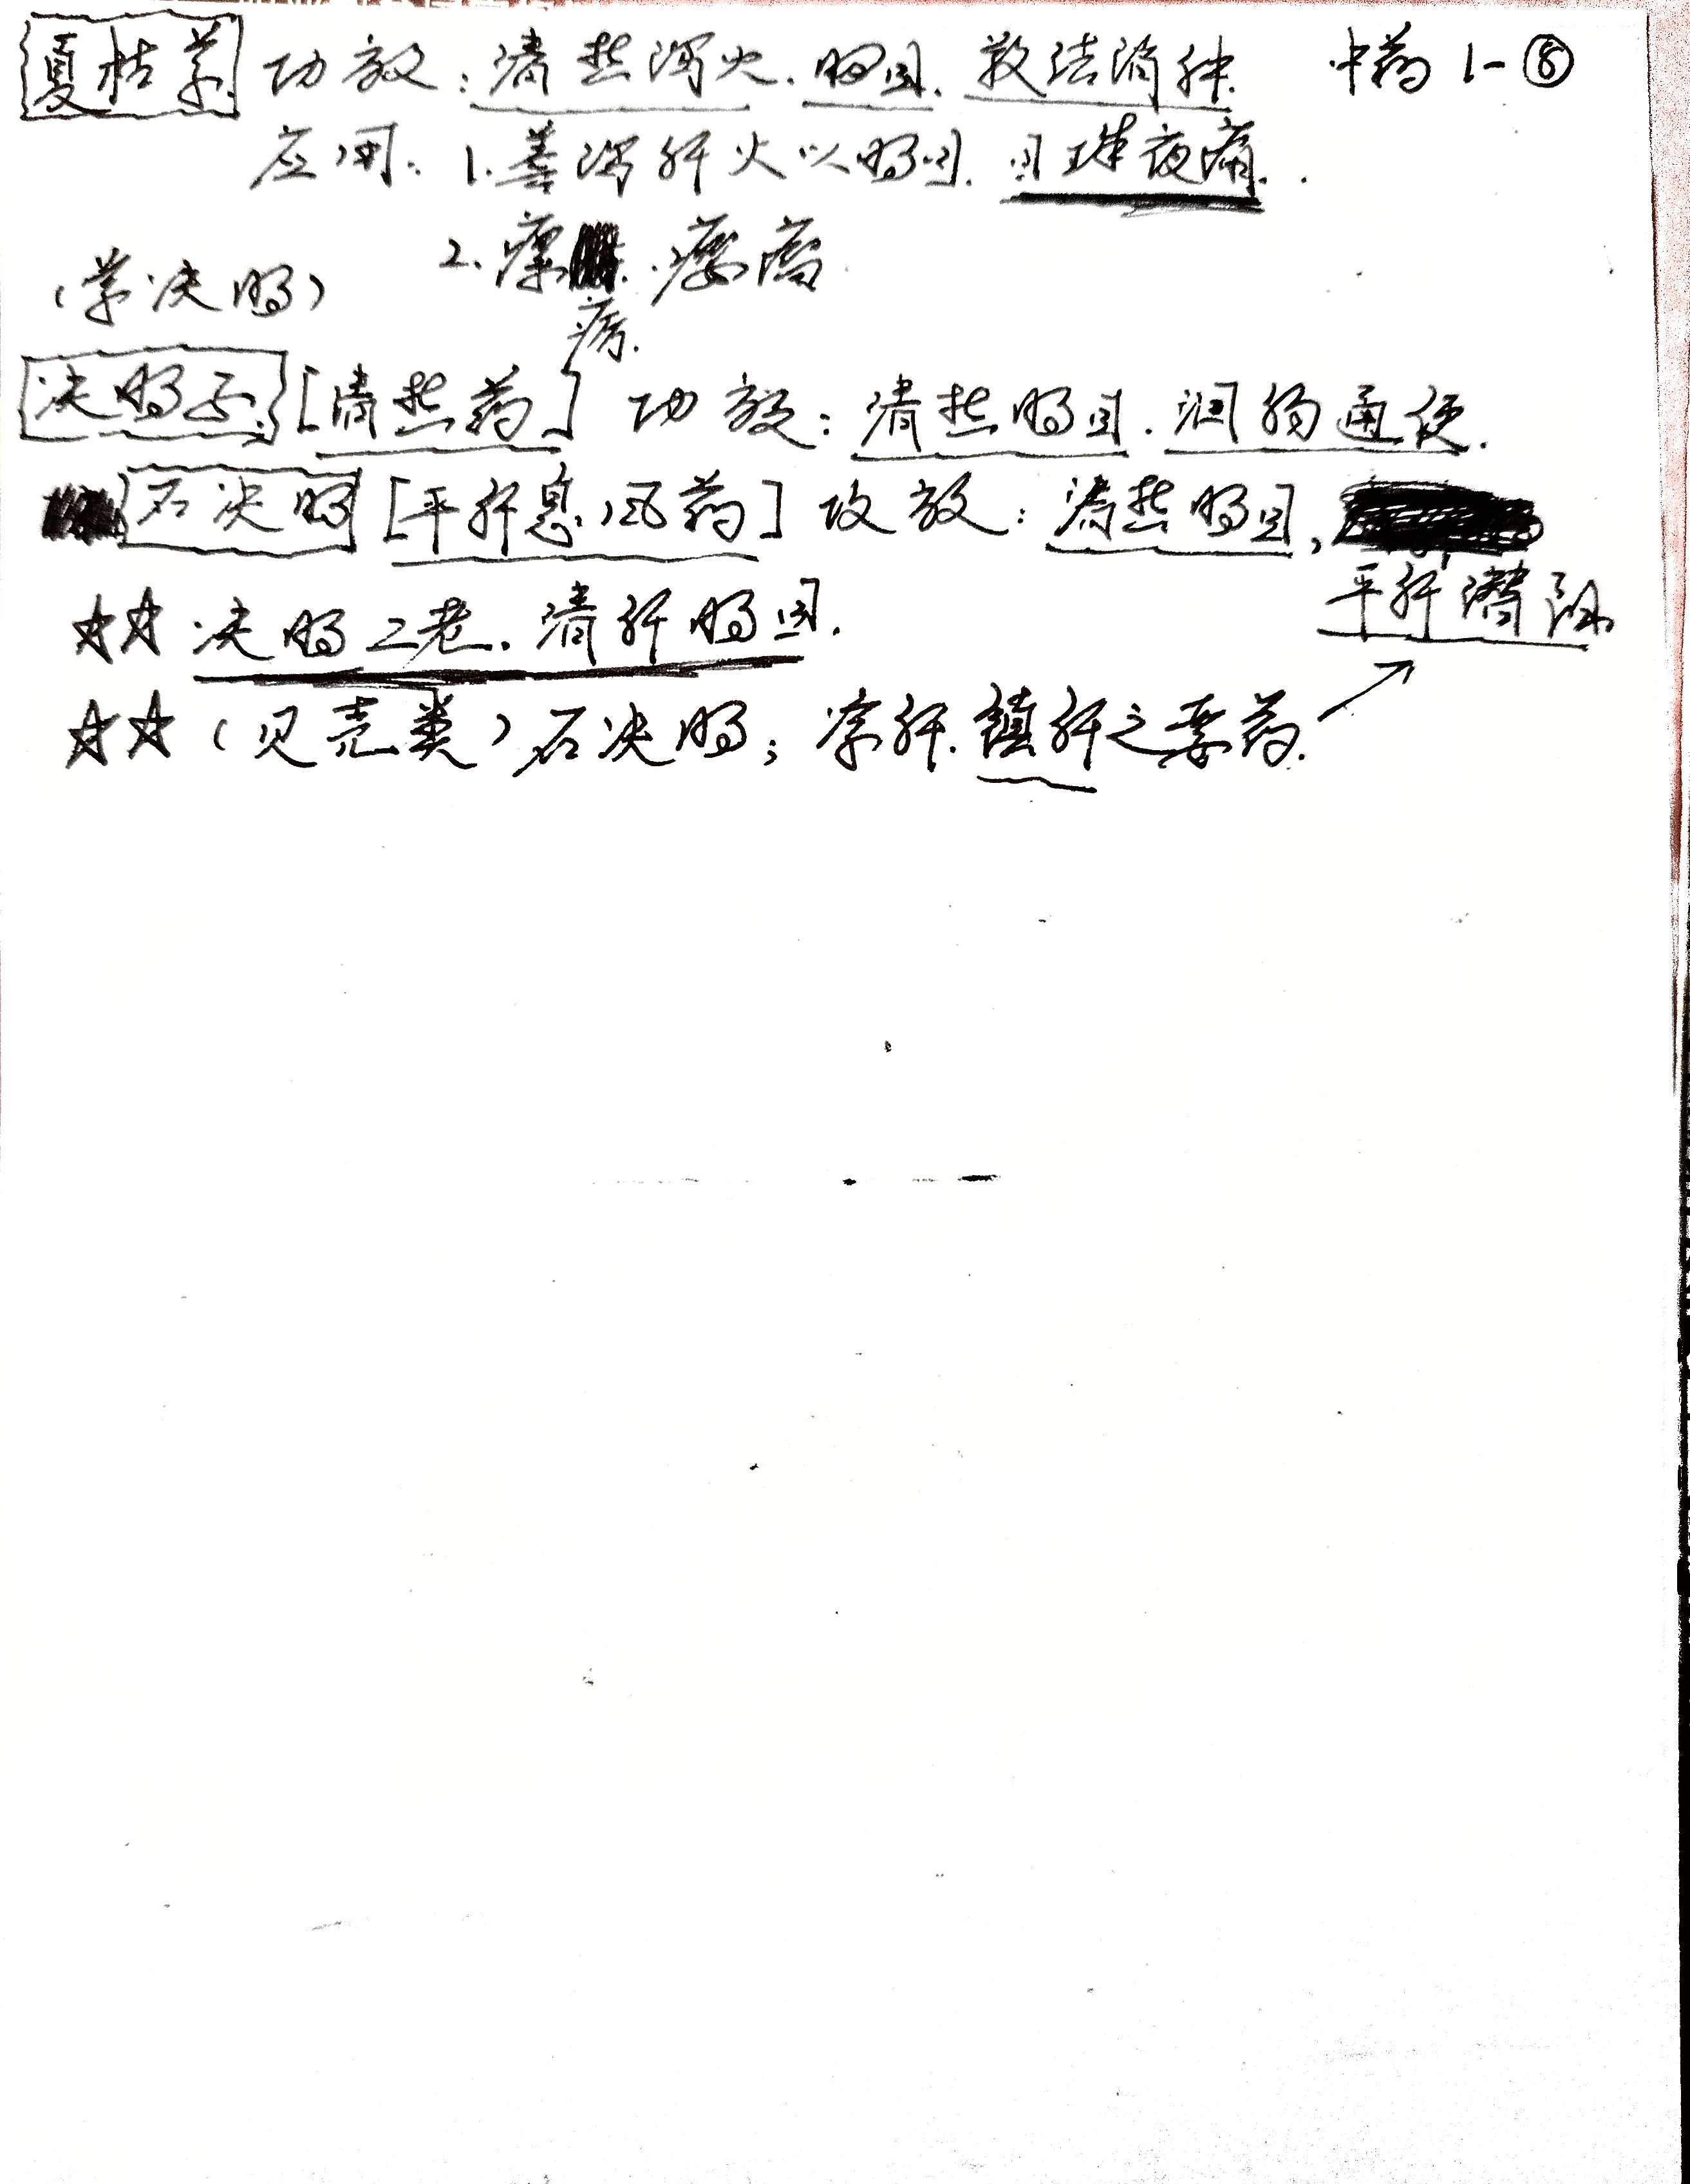 夏枯草 功效:清热泻火.明目.散结消肿. 中药 1-⑧
应用:1.善泻肝火以明目.目珠夜痛.
2.瘰疬.瘿瘤
(草决明)
决明子 [清热药] 功效:清热明目.润肠通便.
石决明 [平肝息风药] 攻效:清热明目,
平肝潜阳
☆☆ 决明二老.清肝明目.
☆☆ (贝壳类)石决明;凉肝.镇肝之要药.